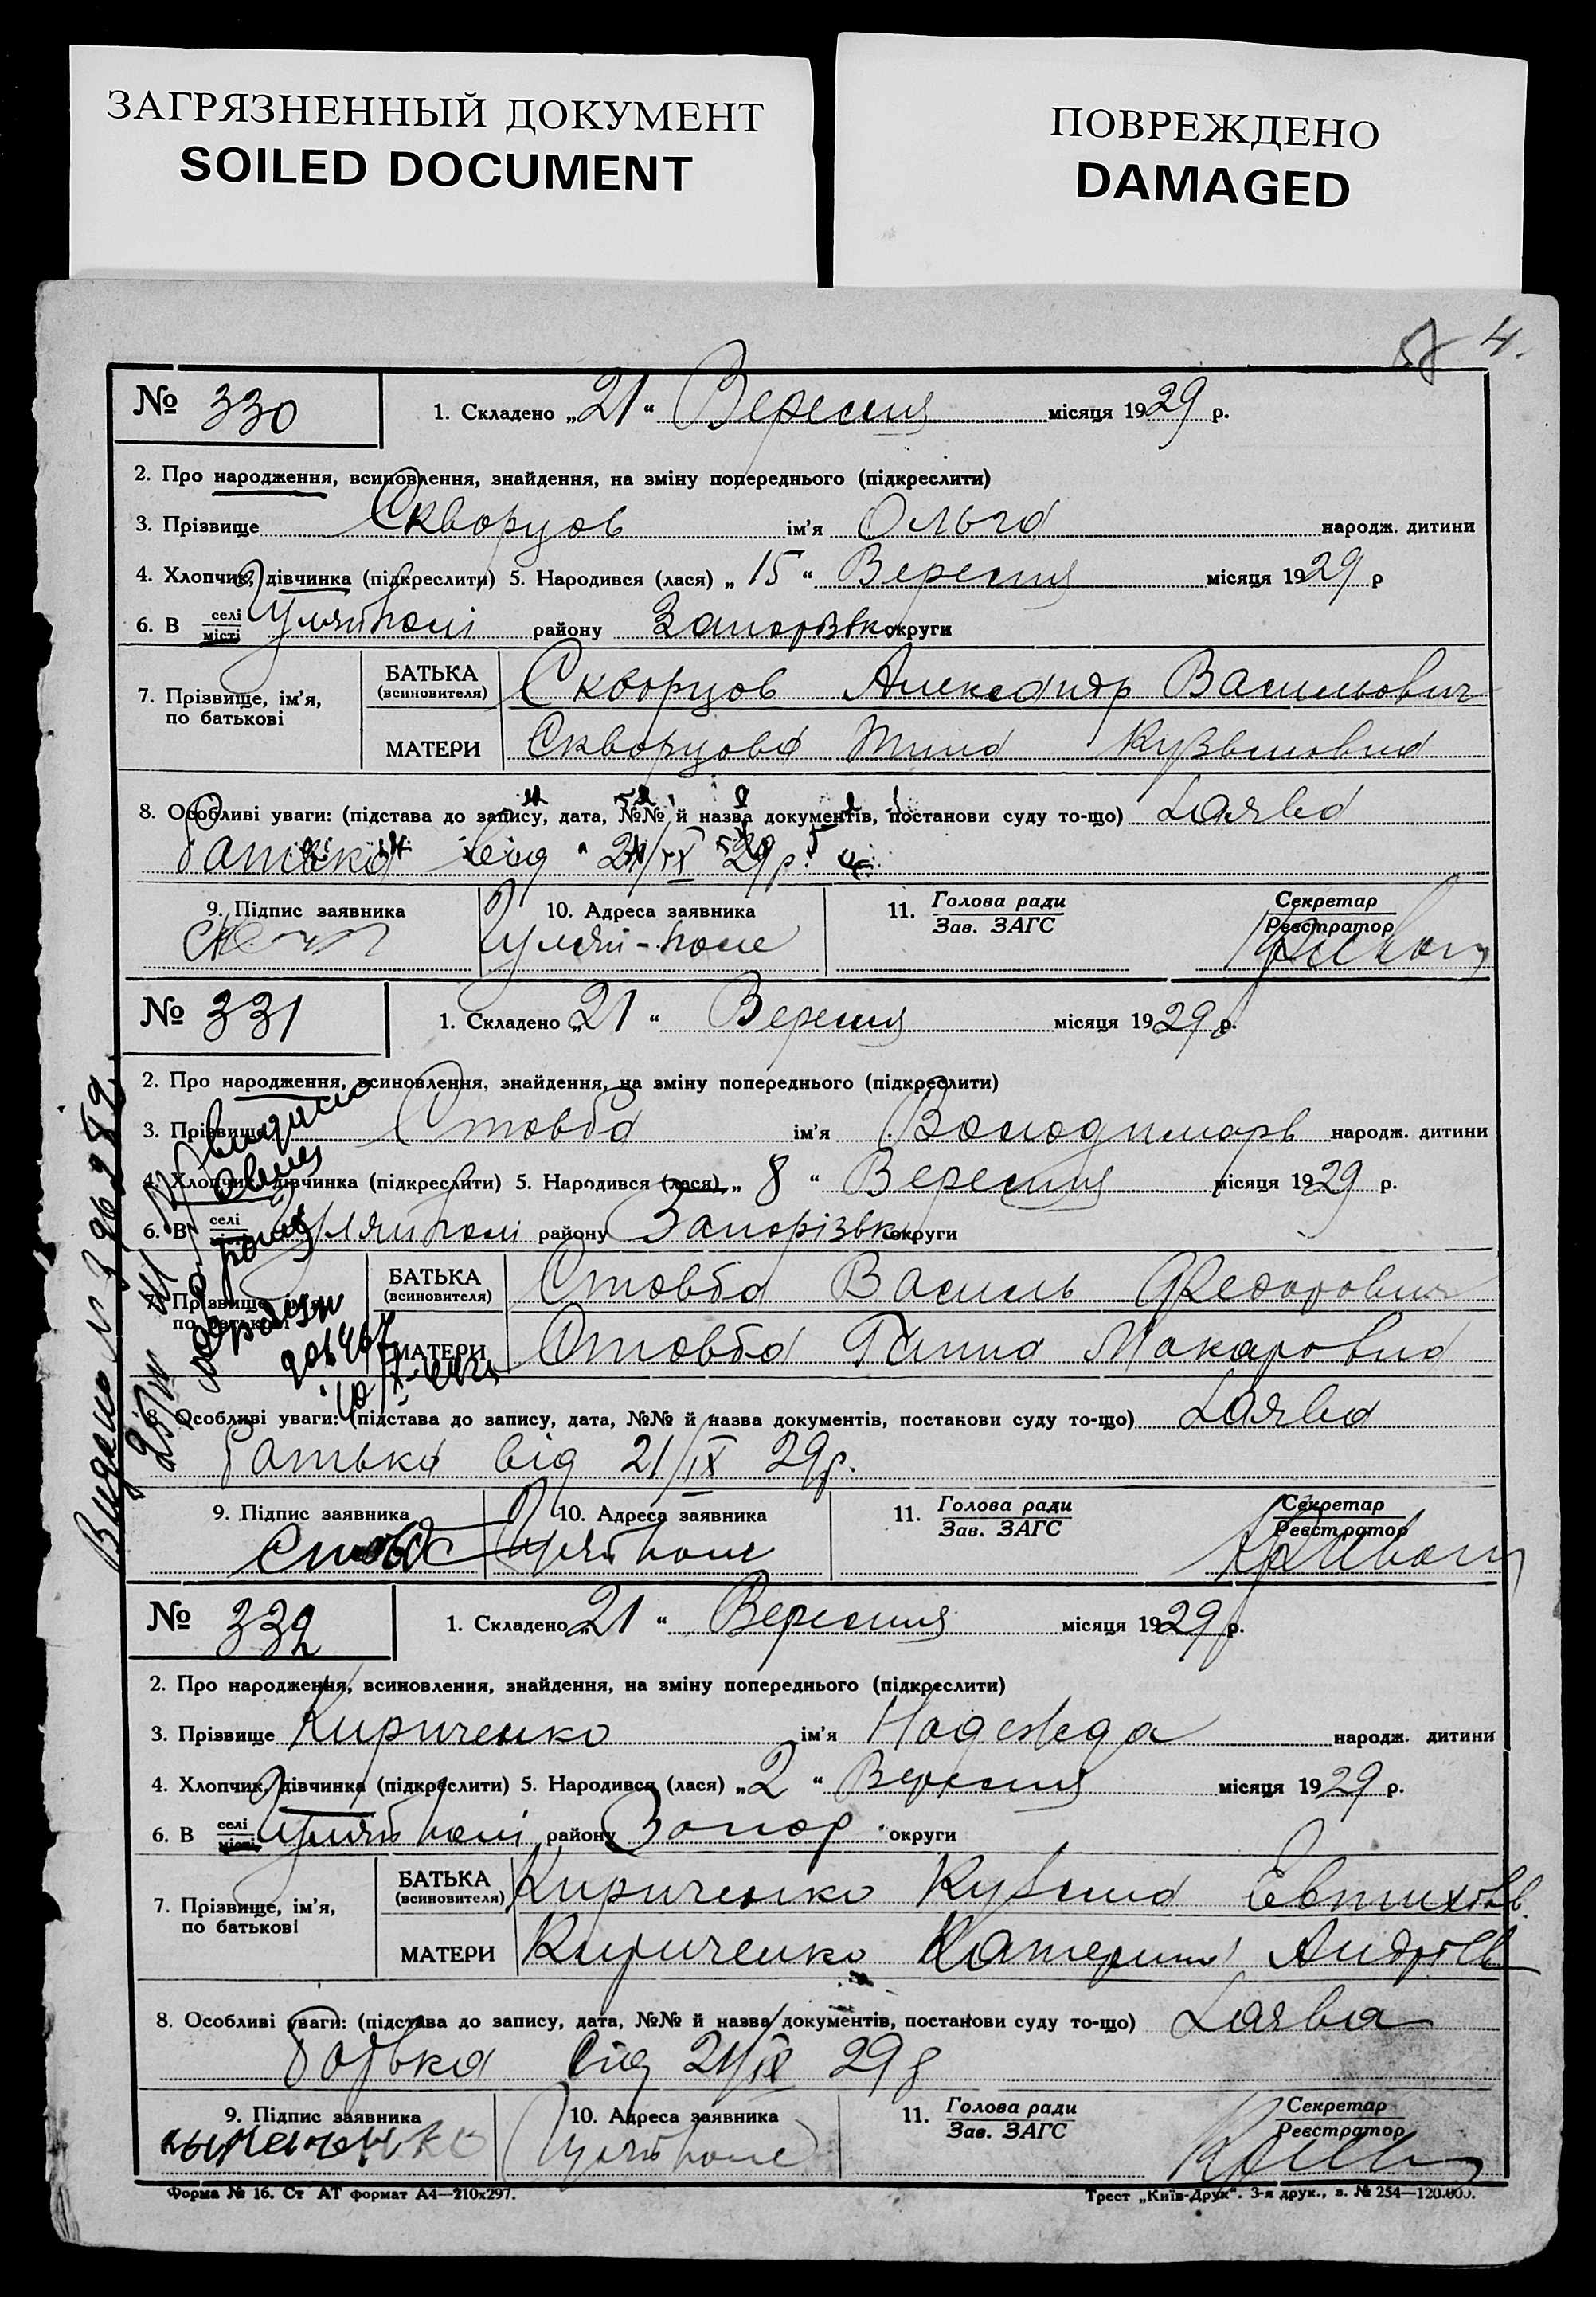 ЗАГРЯЗНЕННЫЙ ДОКУМЕНТ
SOILED DOCUMENT
ПОВРЕЖДЕНО
DAMAGED
4.
№ 330 1. Складено „21“ Вересня місяця 1929 р.
2. Про народження, всиновлення, знайдення, на зміну попереднього (підкреслити)
3. Прізвище Скворцов ім'я Ольга народж. дитини
4. Хлопчик, дівчинка (підкреслити) 5. Народився (лася) „15“ Вересня місяця 1929 р
6. В селі місті Гуляйполі району Запорізьк округи
7. Прізвище, ім'я, по батькові
БАТЬКА (всиновителя) Скворцов Александр Васильович
МАТЕРИ Скворцова Кузьмовна
8. Особливі уваги: (підстава до запису, дата, №№ й назва документів, постанови суду то-що) Заява
батька від 21/IX 29 р.
9. Підпис заявника 10. Адреса заявника 11. Голова ради Зав. ЗАГС Секретар Реєстратор
Гуляй-поле
№ 331 1. Складено „21“ Вересня місяця 1929 р.
2. Про народження, всиновлення, знайдення, на зміну попереднього (підкреслити)
3. Прізвище Стовба ім'я Володимарь народж. дитини
4. Хлопчик, дівчинка (підкреслити) 5. Народився (лася) „8“ Вересня місяця 1929 р.
6. В селі Гуляйполі району Запорізьк округи
7. Прізвище, ім'я, по батькові
БАТЬКА (всиновителя) Стовба Василь Федорович
МАТЕРИ Стовба Ганна Макаровна
8. Особливі уваги: (підстава до запису, дата, №№ й назва документів, постанови суду то-що) Заява
батька від 21/IX 29р.
9. Підпис заявника 10. Адреса заявника 11. Голова ради Зав. ЗАГС Секретар Реєстратор
Стовба Гуляйполе
№ 332 1. Складено „21“ Вересня місяця 1929 р.
2. Про народження, всиновлення, знайдення, на зміну попереднього (підкреслити)
3. Прізвище Кириченко ім'я Надежда народж. дитини
4. Хлопчик, дівчинка (підкреслити) 5. Народився (лася) „2“ Вересня місяця 1929 р.
6. В селі місті Гуляйполі району Запор. округи
7. Прізвище, ім'я, по батькові
БАТЬКА (всиновителя) Кириченко Кузьма
МАТЕРИ Кириченко Катерина
8. Особливі уваги: (підстава до запису, дата, №№ й назва документів, постанови суду то-що) Заява
батька від 21/IX 29 р
9. Підпис заявника 10. Адреса заявника 11. Голова ради Зав. ЗАГС Секретар Реєстратор
Гуляйполе
Форма № 16. Ст АТ формат А4—210х297.
Трест „Київ-Друк“. 3-я друк., з. № 254—120.000.